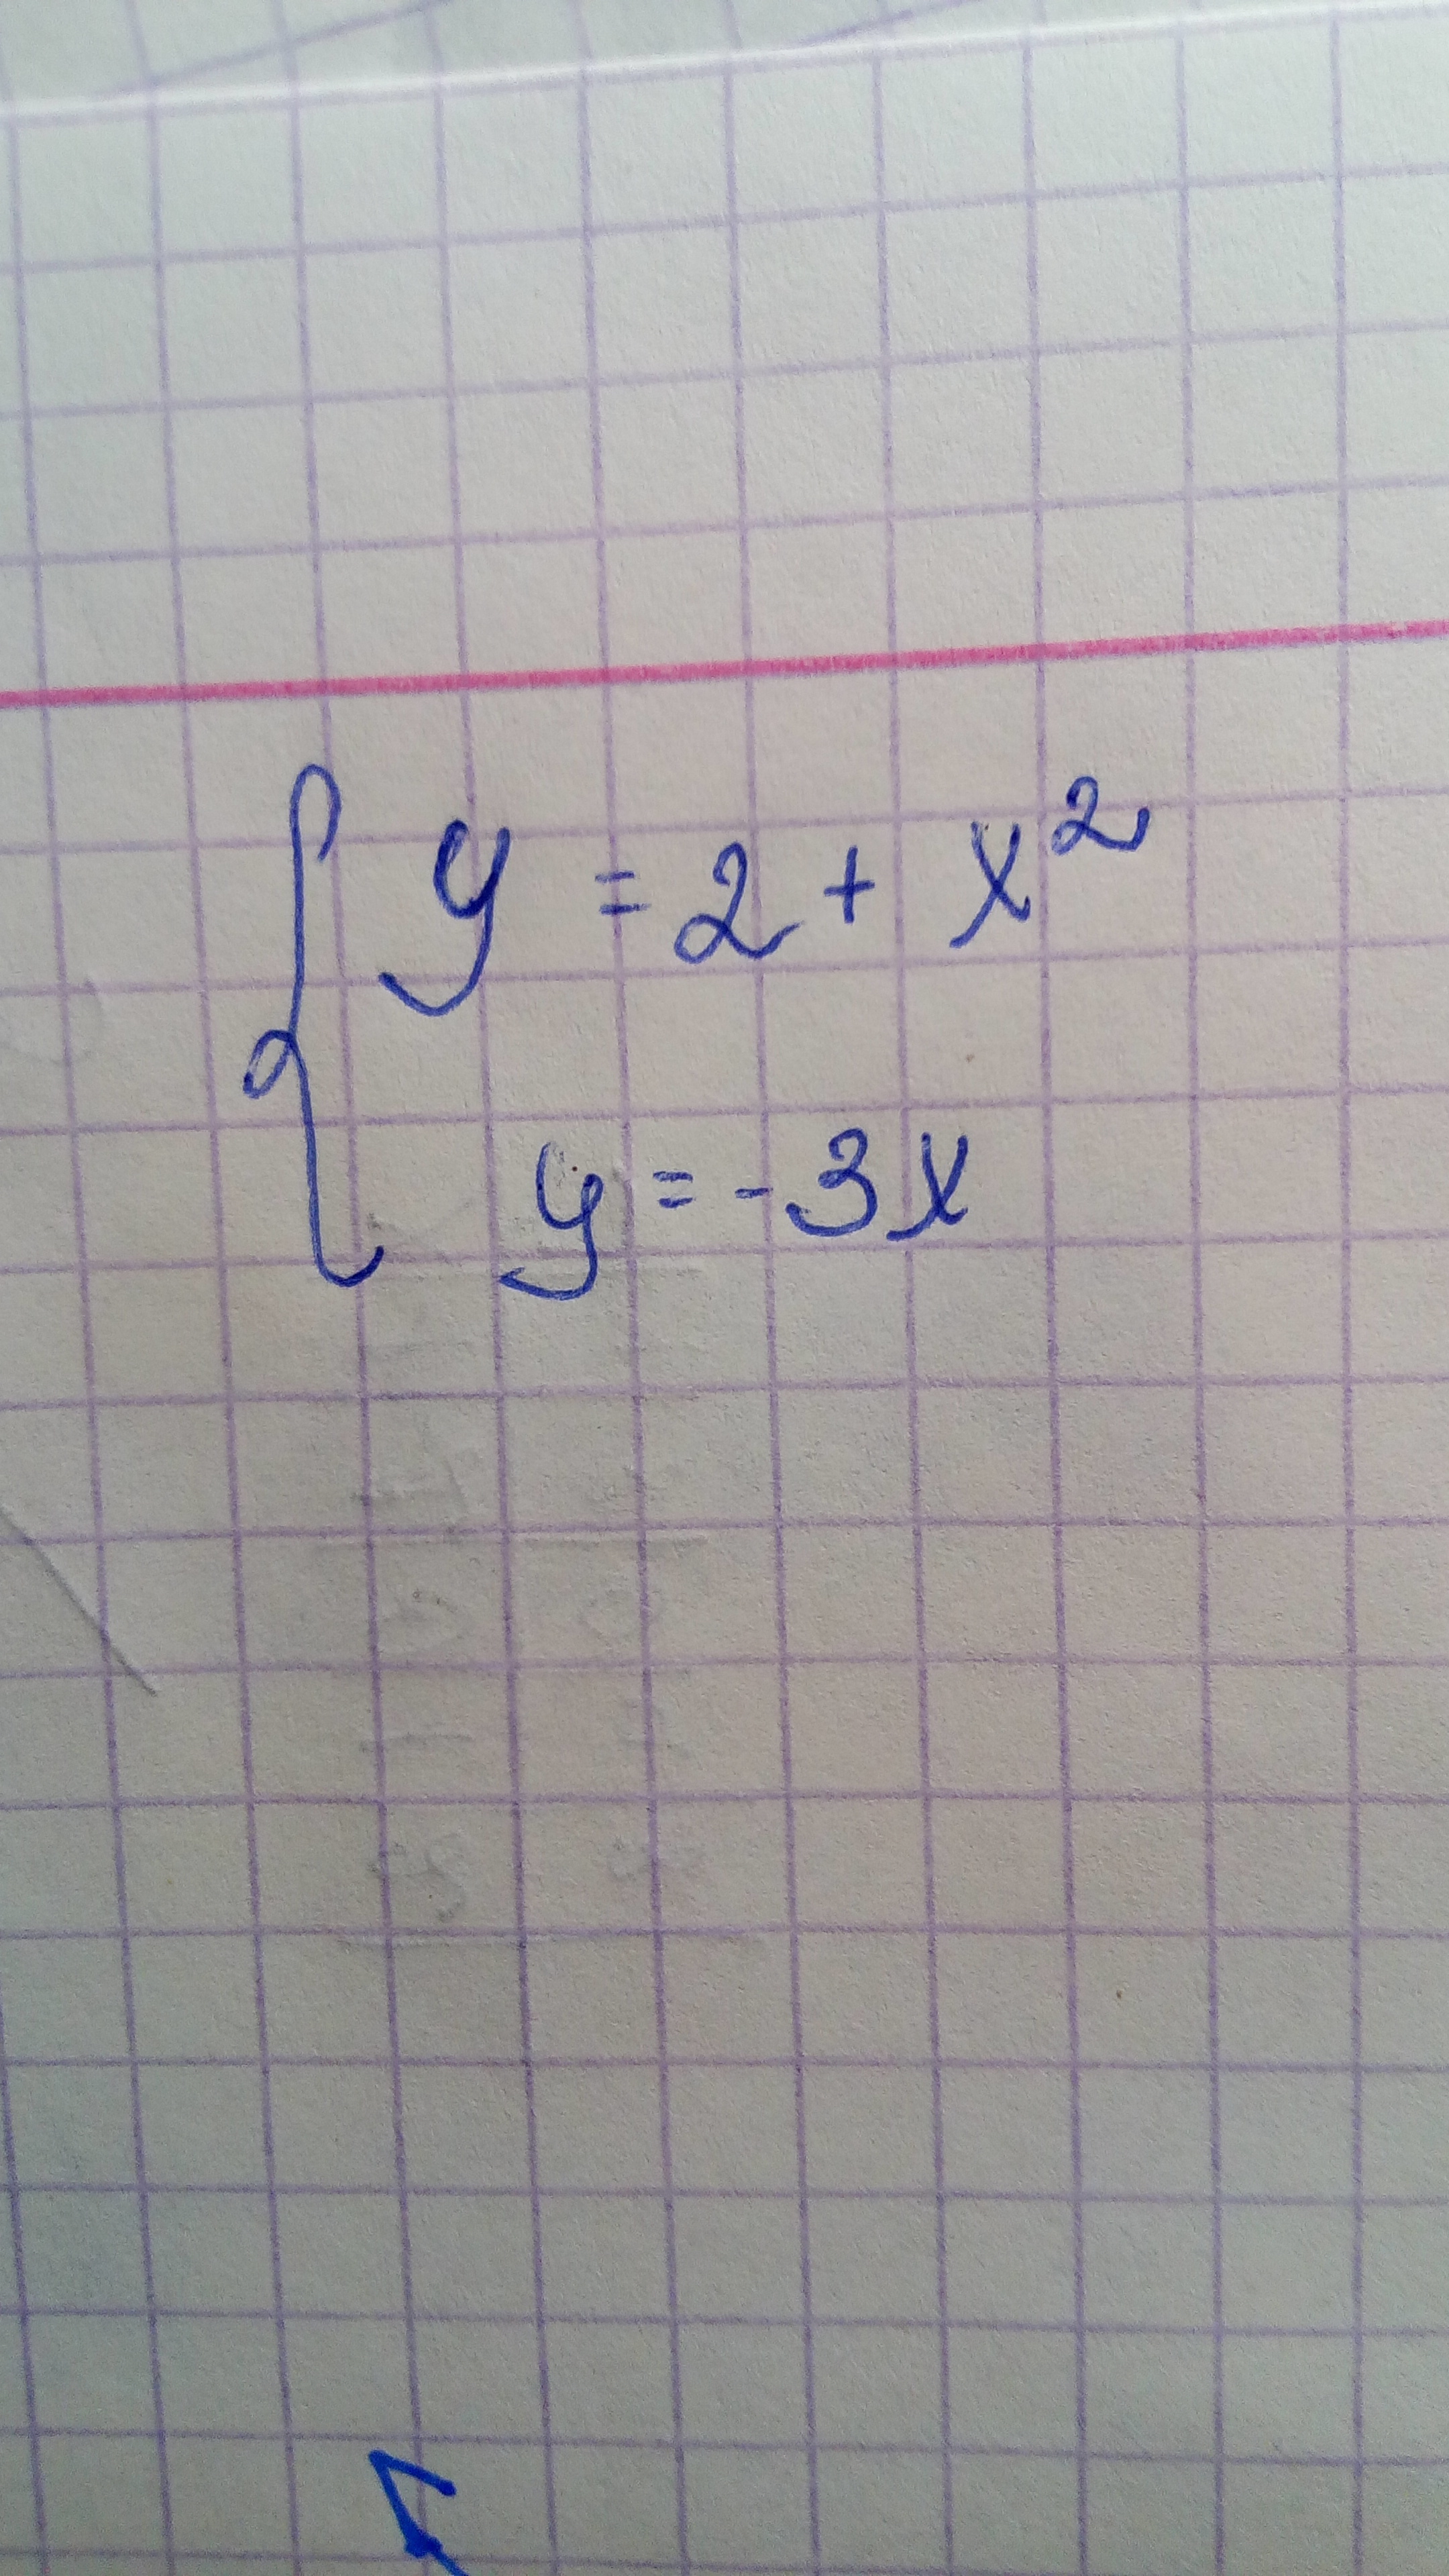 y = 2 + x²
y = -3x